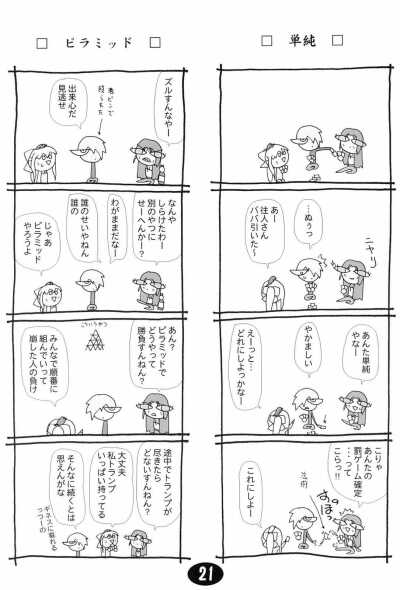 □ 単純 □
…ぬうっ
ニヤリ
あー
往人さん
ババ引いた〜
あんた単純
やなー
やかましい
えーっと
どれにしよっかな〜
こりゃ
あんたの
罰ゲーム確定
…って
こらっ!!
すっぽーん
これにしよー
□ ピラミッド □
ズルすんなやー
出来心だ
見逃せ
なんや
しらけたわー
別のやつに
せーへんかー?
わがままだなー
誰のせいやねん
誰の
じゃあ
ピラミッド
やろうよ
あん?
ピラミッドで
どうやって
勝負すんねん?
こういうやつ
みんなで順番に
組んでいって
崩した人の負け
途中でトランプが
尽きたら
どないすんねん?
大丈夫
私トランプ
いっぱい持ってる
そんなに続くとは
思えんがな
21